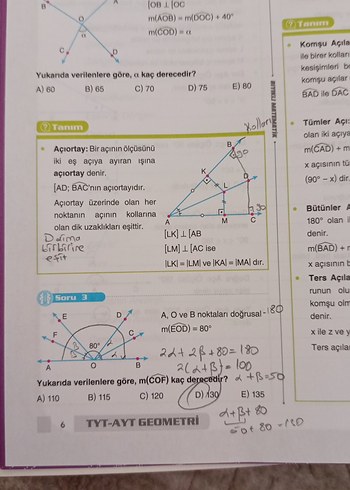 |OB ⊥ |OC
m(AOB) = m(DOC) + 40°
m(COD) = α
B
O
α
C
D
Yukarıda verilenlere göre, α kaç derecedir?
A) 60 B) 65 C) 70 D) 75 E) 80
Tanım
Açıortay: Bir açının ölçüsünü
iki eş açıya ayıran ışına
açıortay denir.
[AD; BAC'nın açıortayıdır.
Açıortay üzerinde olan her
noktanın açının kollarına
olan dik uzaklıkları eşittir.
Daima
birbirine
eşit
B
K
D
L
A
M
C
90
[LK] ⊥ [AB
[LM] ⊥ [AC ise
|LK| = |LM| ve |KA| = |MA| dır.
Soru 3
E
D
F
C
80°
A
O
B
A, O ve B noktaları doğrusal -180
m(EOD) = 80°
2α + 2β + 80 = 180
2(α+β) = 100
α+β=50
Yukarıda verilenlere göre, m(COF) kaç derecedir?
A) 110 B) 115 C) 120 D) 130 E) 135
α+β+80
50+80=130
6 TYT-AYT GEOMETRİ
Tanım
Komşu Açıla
ile birer kolları
kesişimleri b
komşu açılar
BAD ile DAC
Tümler Açı:
olan iki açıya
m(CAD) + m
x açısının tü
(90° – x) dir.
Bütünler A
180° olan i
denir.
m(BAD) + m
x açısının b
Ters Açıla
runun olu
komşu olm
denir.
x ile z ve y
Ters açıla